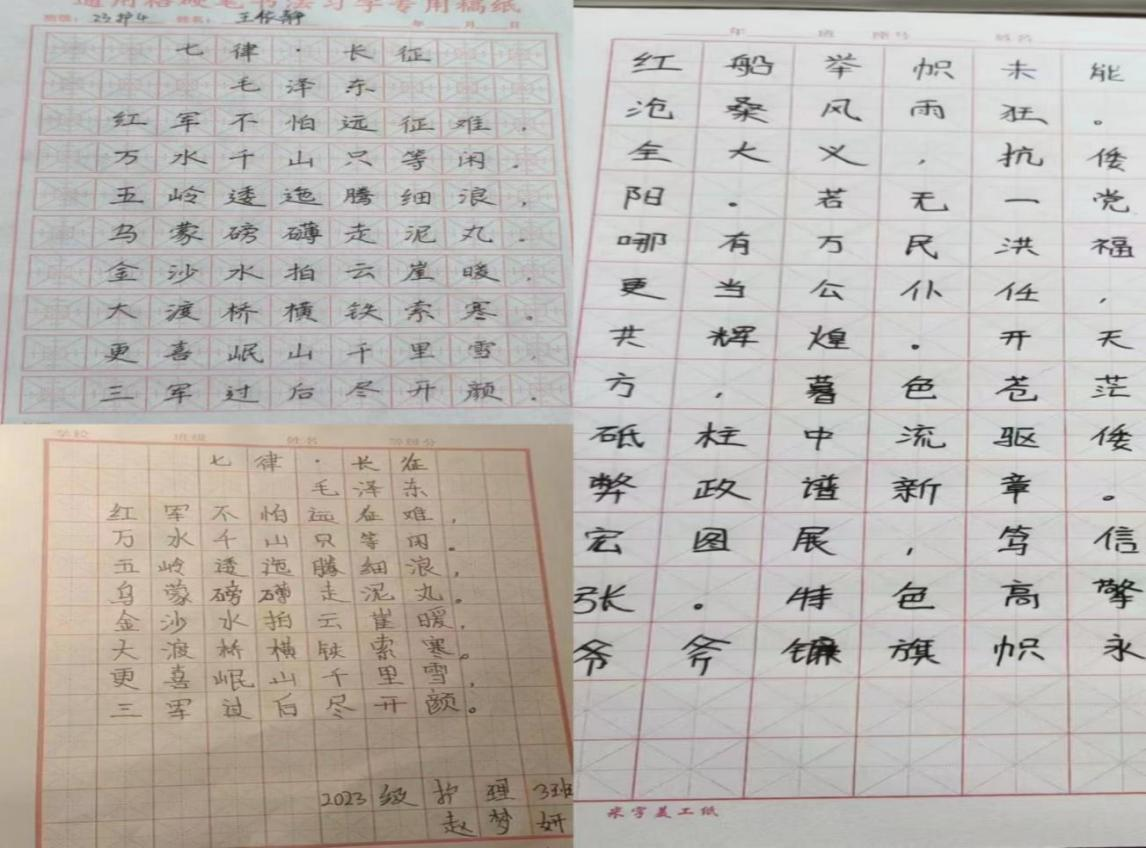 通用格硬笔书法习字专用稿纸
班级：23护4 姓名：王依静 年 月 日
七律·长征
毛泽东
红军不怕远征难，
万水千山只等闲。
五岭逶迤腾细浪，
乌蒙磅礴走泥丸。
金沙水拍云崖暖，
大渡桥横铁索寒。
更喜岷山千里雪，
三军过后尽开颜。
学校 班级 姓名 等级分
七律·长征
毛泽东
红军不怕远征难，
万水千山只等闲。
五岭透迤腾细浪，
乌蒙磅礴走泥丸。
金沙水拍云崖暖，
大渡桥横铁索寒。
更喜岷山千里雪，
三军过后尽开颜。
2023级护理3班
赵梦妍
年 班 座号 姓名
红船举帜未能
沧桑风雨狂。
全大义，抗倭
阳。若无一党
哪有万民洪福
更当公仆任，
共辉煌。开天
方，暮色苍茫
砥柱中流驱倭
弊政谱新章。
宏图展，笃信
张。特色高擎
爷斧镰旗帜永
米字美工纸